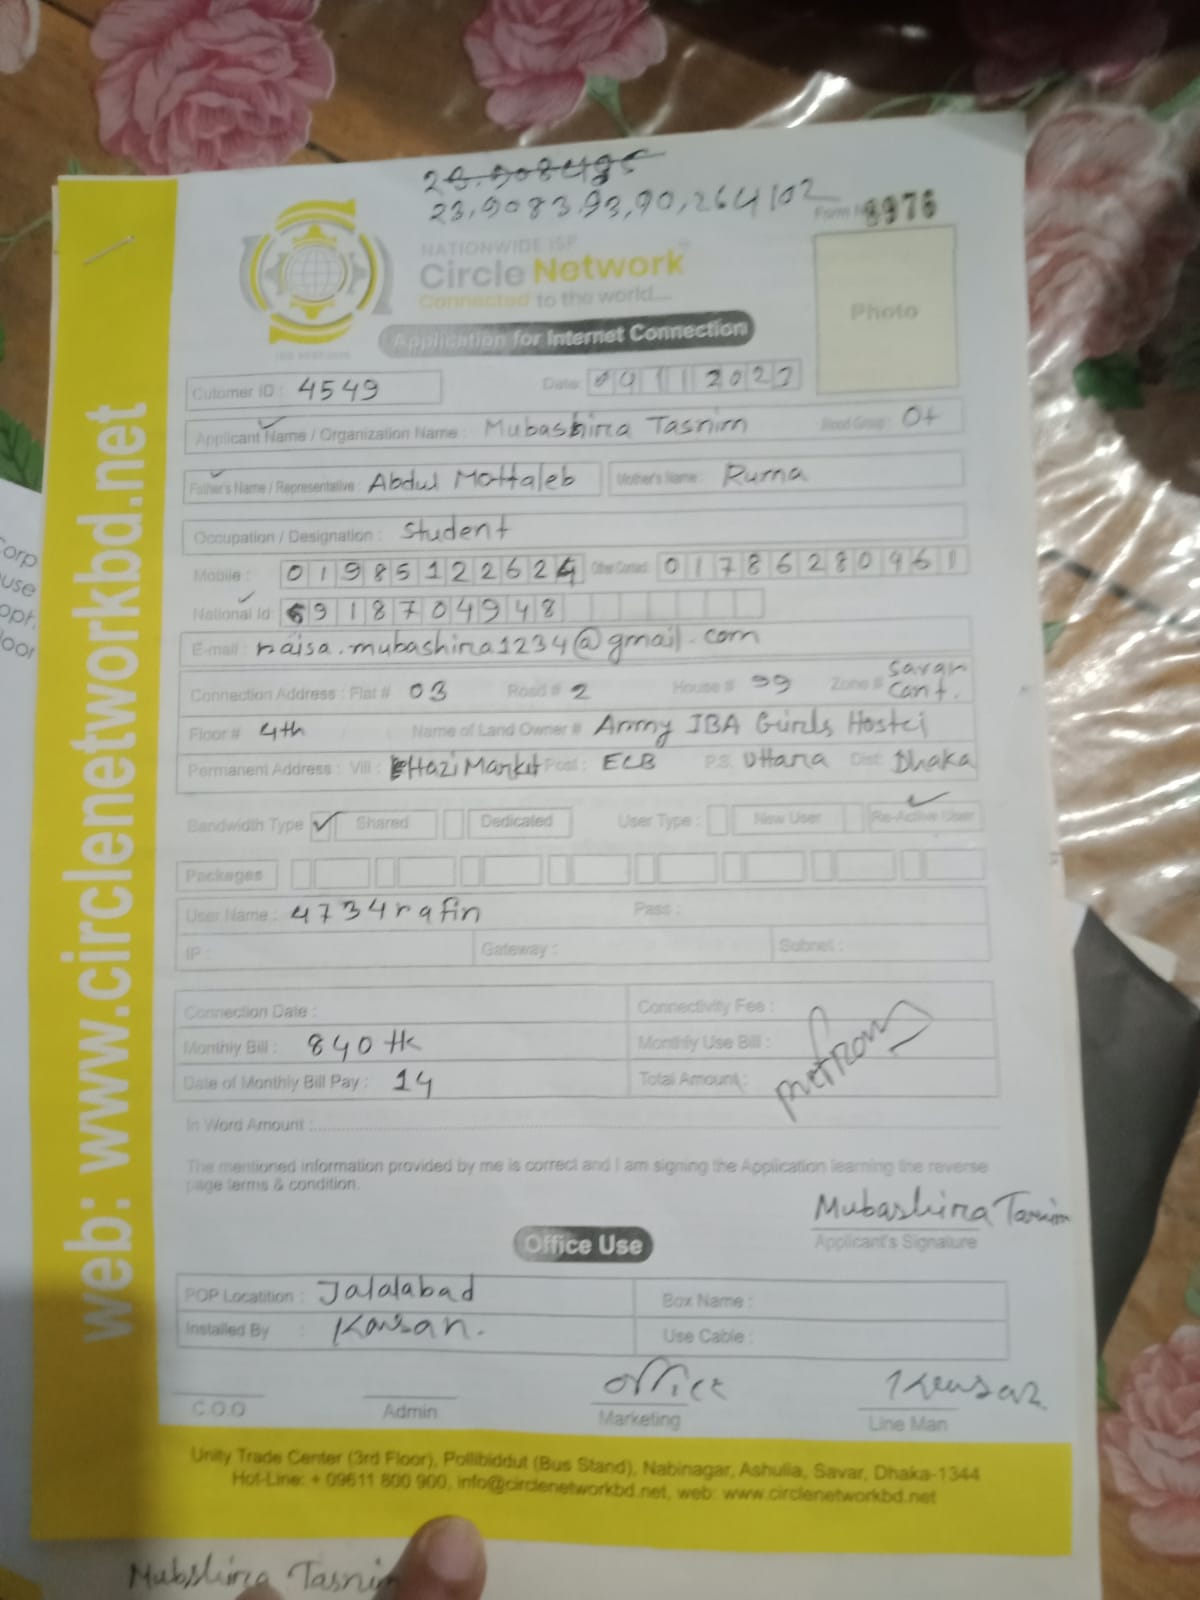 23,9083.93,90,264102
Form N 8976
NATIONWIDE ISP
Circle Network
Connected to the world....
Application for Internet Connection
Photo
Cutomer ID : 4549
Date: 04 11 2023
Applicant Name / Organization Name : Mubashira Tasnim Blood Group : O+
Father's Name / Representative : Abdul Mottaleb Mother's Name : Ruma
Occupation / Designation : Student
Mobile : 01985122624 Other Contact: 01786280961
National Id: 6918704948
E-mail : raisa.mubashira1234@gmail.com
Connection Address : Flat # 03 Road # 2 House # 99 Zone # Savar Cant.
Floor # 4th Name of Land Owner # Army IBA Girls Hostel
Permanent Address : Vill : Hazi Market Post : ECB P.S. Uttara Dist: Dhaka
Bandwidth Type Shared Dedicated User Type : New User Re-Active User
Packages
User Name : 4734rafin Pass :
IP : Gateway : Subnet :
Connection Date : Connectivity Fee :
Monthly Bill : 840 tk Monthly Use Bill :
Date of Monthly Bill Pay : 14 Total Amount :
In Word Amount :
The mentioned information provided by me is correct and I am signing the Application learning the reverse
page terms & condition.
Mubashira Tasnim
Applicant's Signature
Office Use
POP Locatition : Jalalabad Box Name :
Installed By : Use Cable :
office
C.O.O Admin Marketing Line Man
Unity Trade Center (3rd Floor), Pollibiddut (Bus Stand), Nabinagar, Ashulia, Savar, Dhaka-1344
Hot-Line: + 09611 800 900, info@circlenetworkbd.net, web: www.circlenetworkbd.net
web: www.circlenetworkbd.net
Mubshira Tasnim